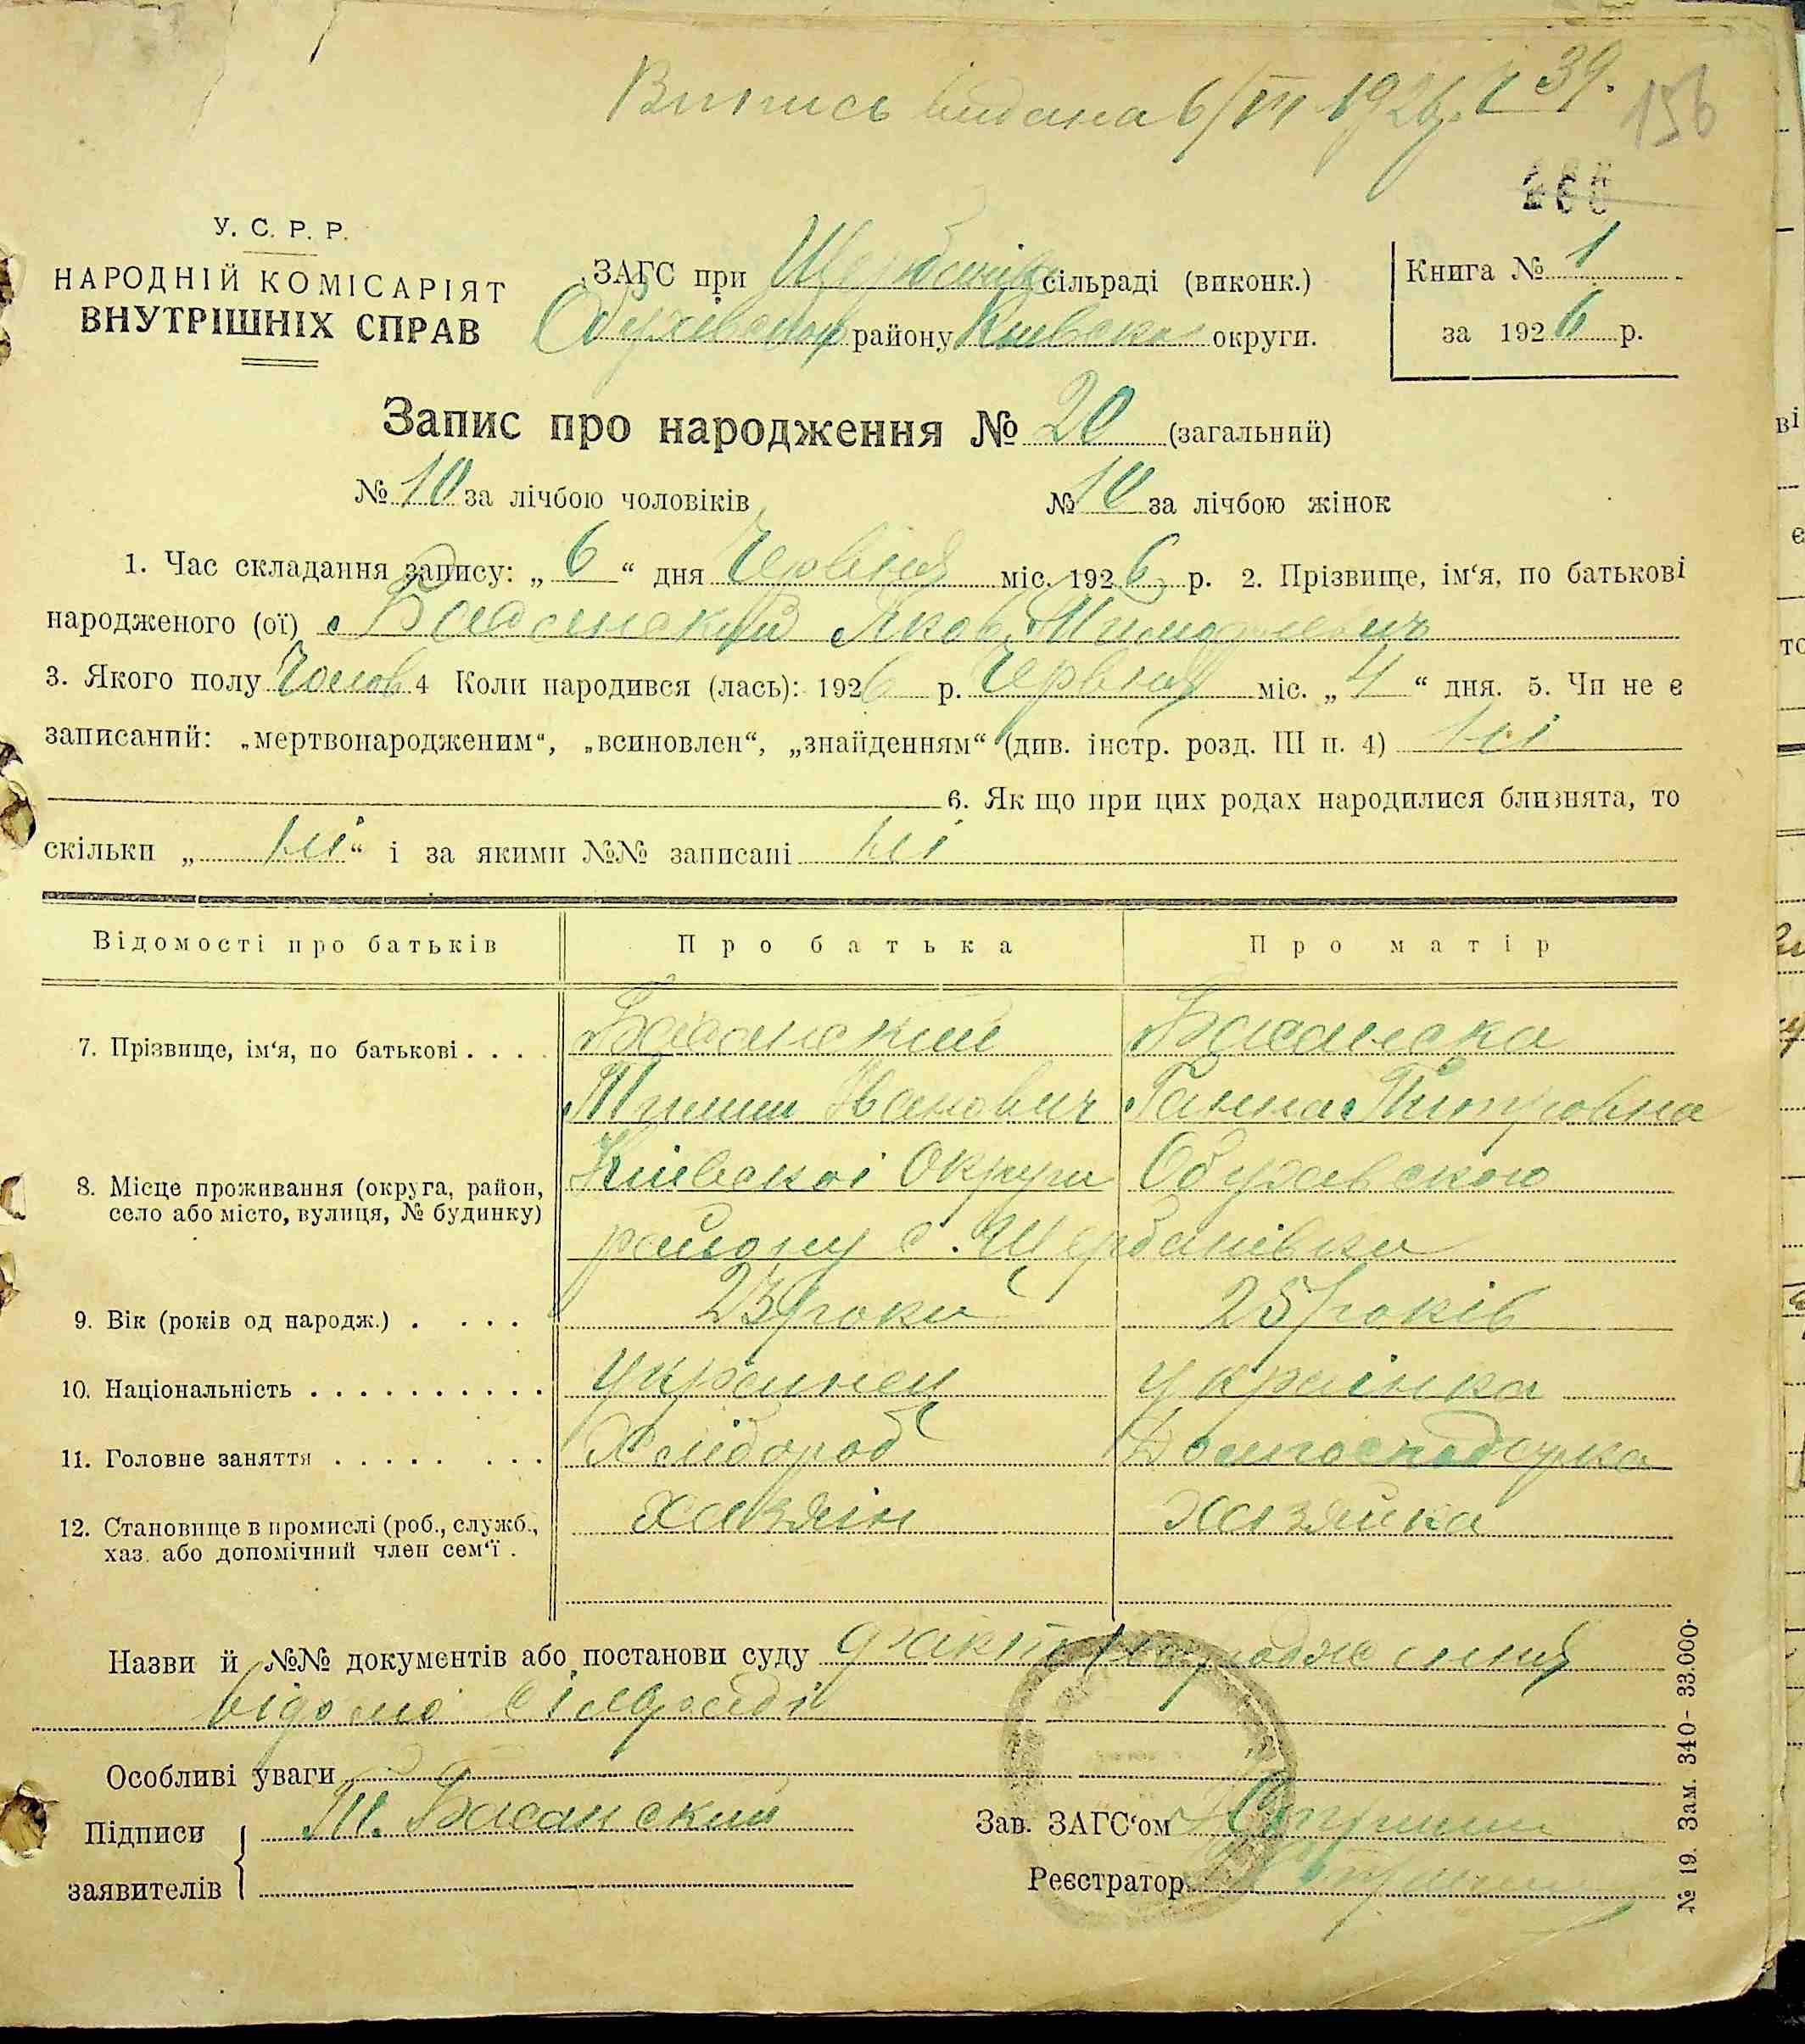 Випись видана 6/VII 1926 р. 39.
156
У. С. Р. Р.
НАРОДНІЙ КОМІСАРІЯТ
ВНУТРІШНІХ СПРАВ
ЗАГС при сільраді (виконк.)
району Киевскоі округи.
Книга № 1
за 1926 р.
Запис про народження № 20 (загальний)
№ 10 за лічбою чоловіків № 10 за лічбою жінок
1. Час складання запису: „ 6 “ дня Червня міс. 1926 р. 2. Прізвище, ім‘я, по батькові
народженого (ої) Басанский Яков
3. Якого полу Чолов 4 Коли народився (лась): 1926 р. Червня міс. „ 4 “ дня. 5. Чи не є
записаний: „мертвонародженим“, „всиновлен“, „знайденням“ (див. інстр. розд. III п. 4) ні
6. Як що при цих родах народилися близнята, то
скільки „ ні “ і за якими №№ записані ні
Відомості про батьків Про батька Про матір
7. Прізвище, ім‘я, по батькові . . . . Басанский Басанска
Тимиш Иванович Ганна Питровна
8. Місце проживання (округа, район, Киівскоі Округи Обухавскою
село або місто, вулиця, № будинку)
району с. Щербанівка
9. Вік (років од народж.) . . . . 23 роки 25 років
10. Національність . . . . . . . . . . украинец украінка
11. Головне заняття . . . . . . . . Хлібороб Домгосподарка
12. Становище в промислі (роб., служб., хазяін хазяйка
хаз. або допомічний член сем‘ї .
Назви й №№ документів або постанови суду факт народження
відомо сілраді
Особливі уваги
Підписи Т. Басанский Зав. ЗАГС‘ом
заявителів Реєстратор
№ 19. Зам. 340- 33.000.